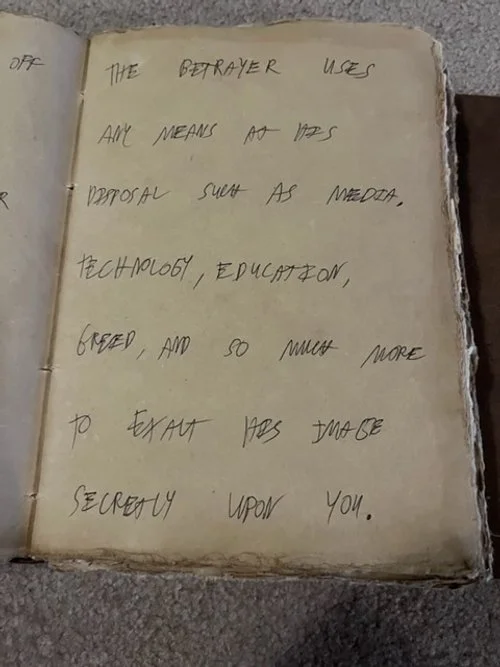 OFF
R
THE BETRAYER USES
ANY MEANS AT HIS
DISPOSAL SUCH AS MEDIA,
TECHNOLOGY, EDUCATION,
GREED, AND SO MUCH MORE
TO EXALT HIS IMAGE
SECRETLY UPON YOU.